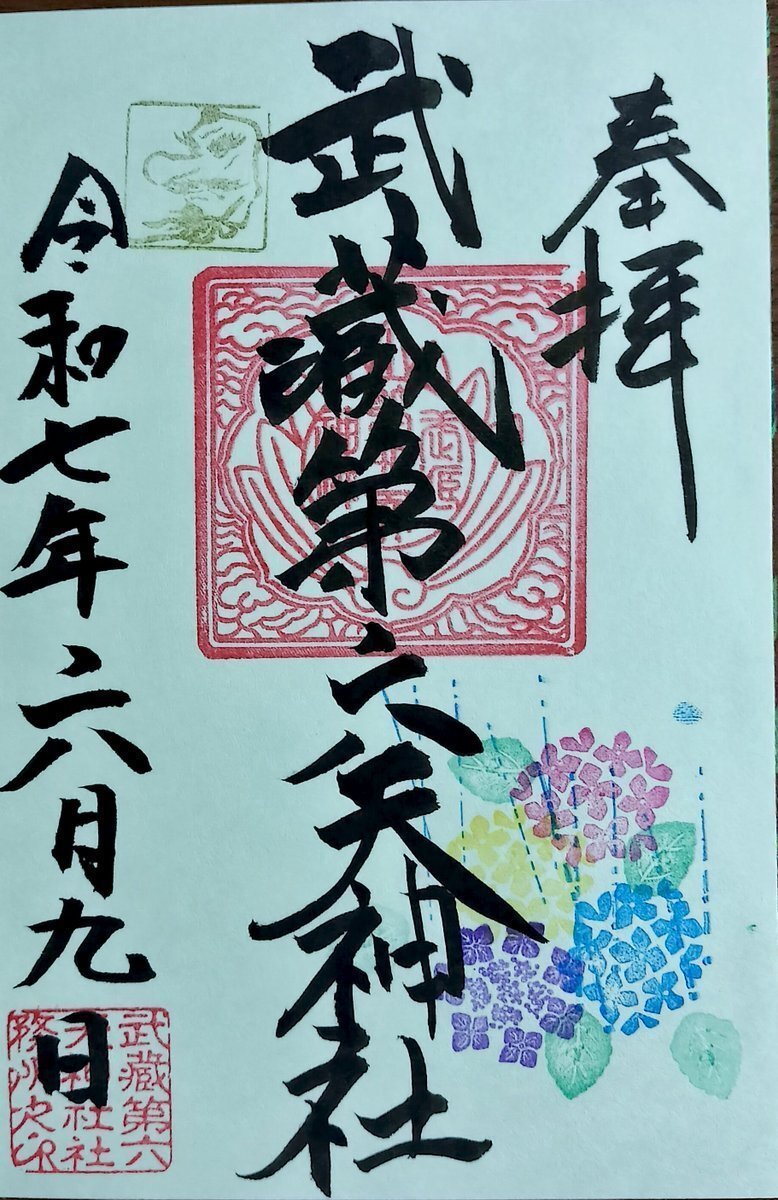 奉拝
武蔵第六天神社
令和七年六月九日
武蔵第六
天神社社
務所之印